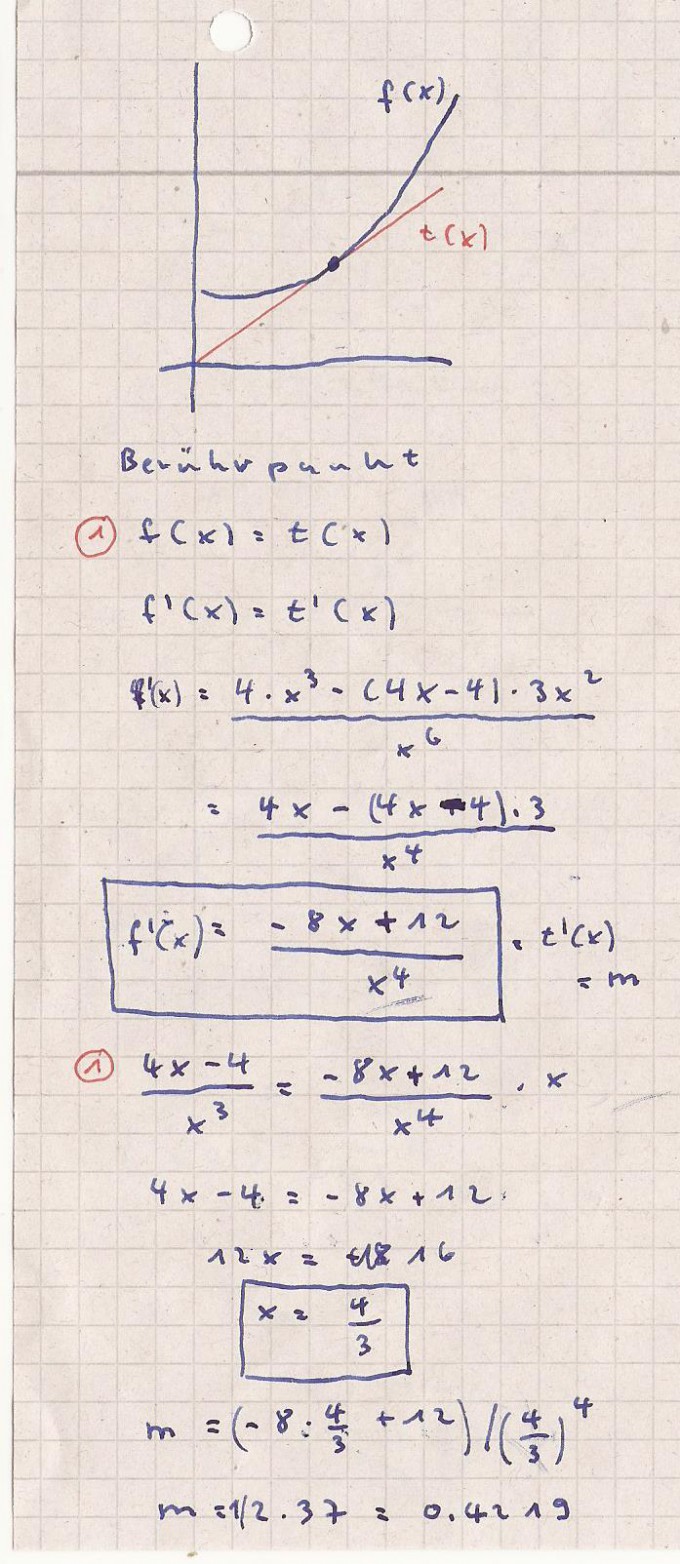 f(x)
t(x)
Berührpunkt
① f(x) = t(x)
f'(x) = t'(x)
f'(x) = 4·x³ - (4x-4)·3x² / x⁶
= 4x - (4x-4)·3 / x⁴
f'(x) = -8x+12 / x⁴ = t'(x)
= m
① 4x-4 / x³ = -8x+12 / x⁴ · x
4x-4 = -8x+12
12x = 16
x = 4/3
m = (-8·4/3 + 12) / (4/3)⁴
m = 1/2.37 = 0.4219